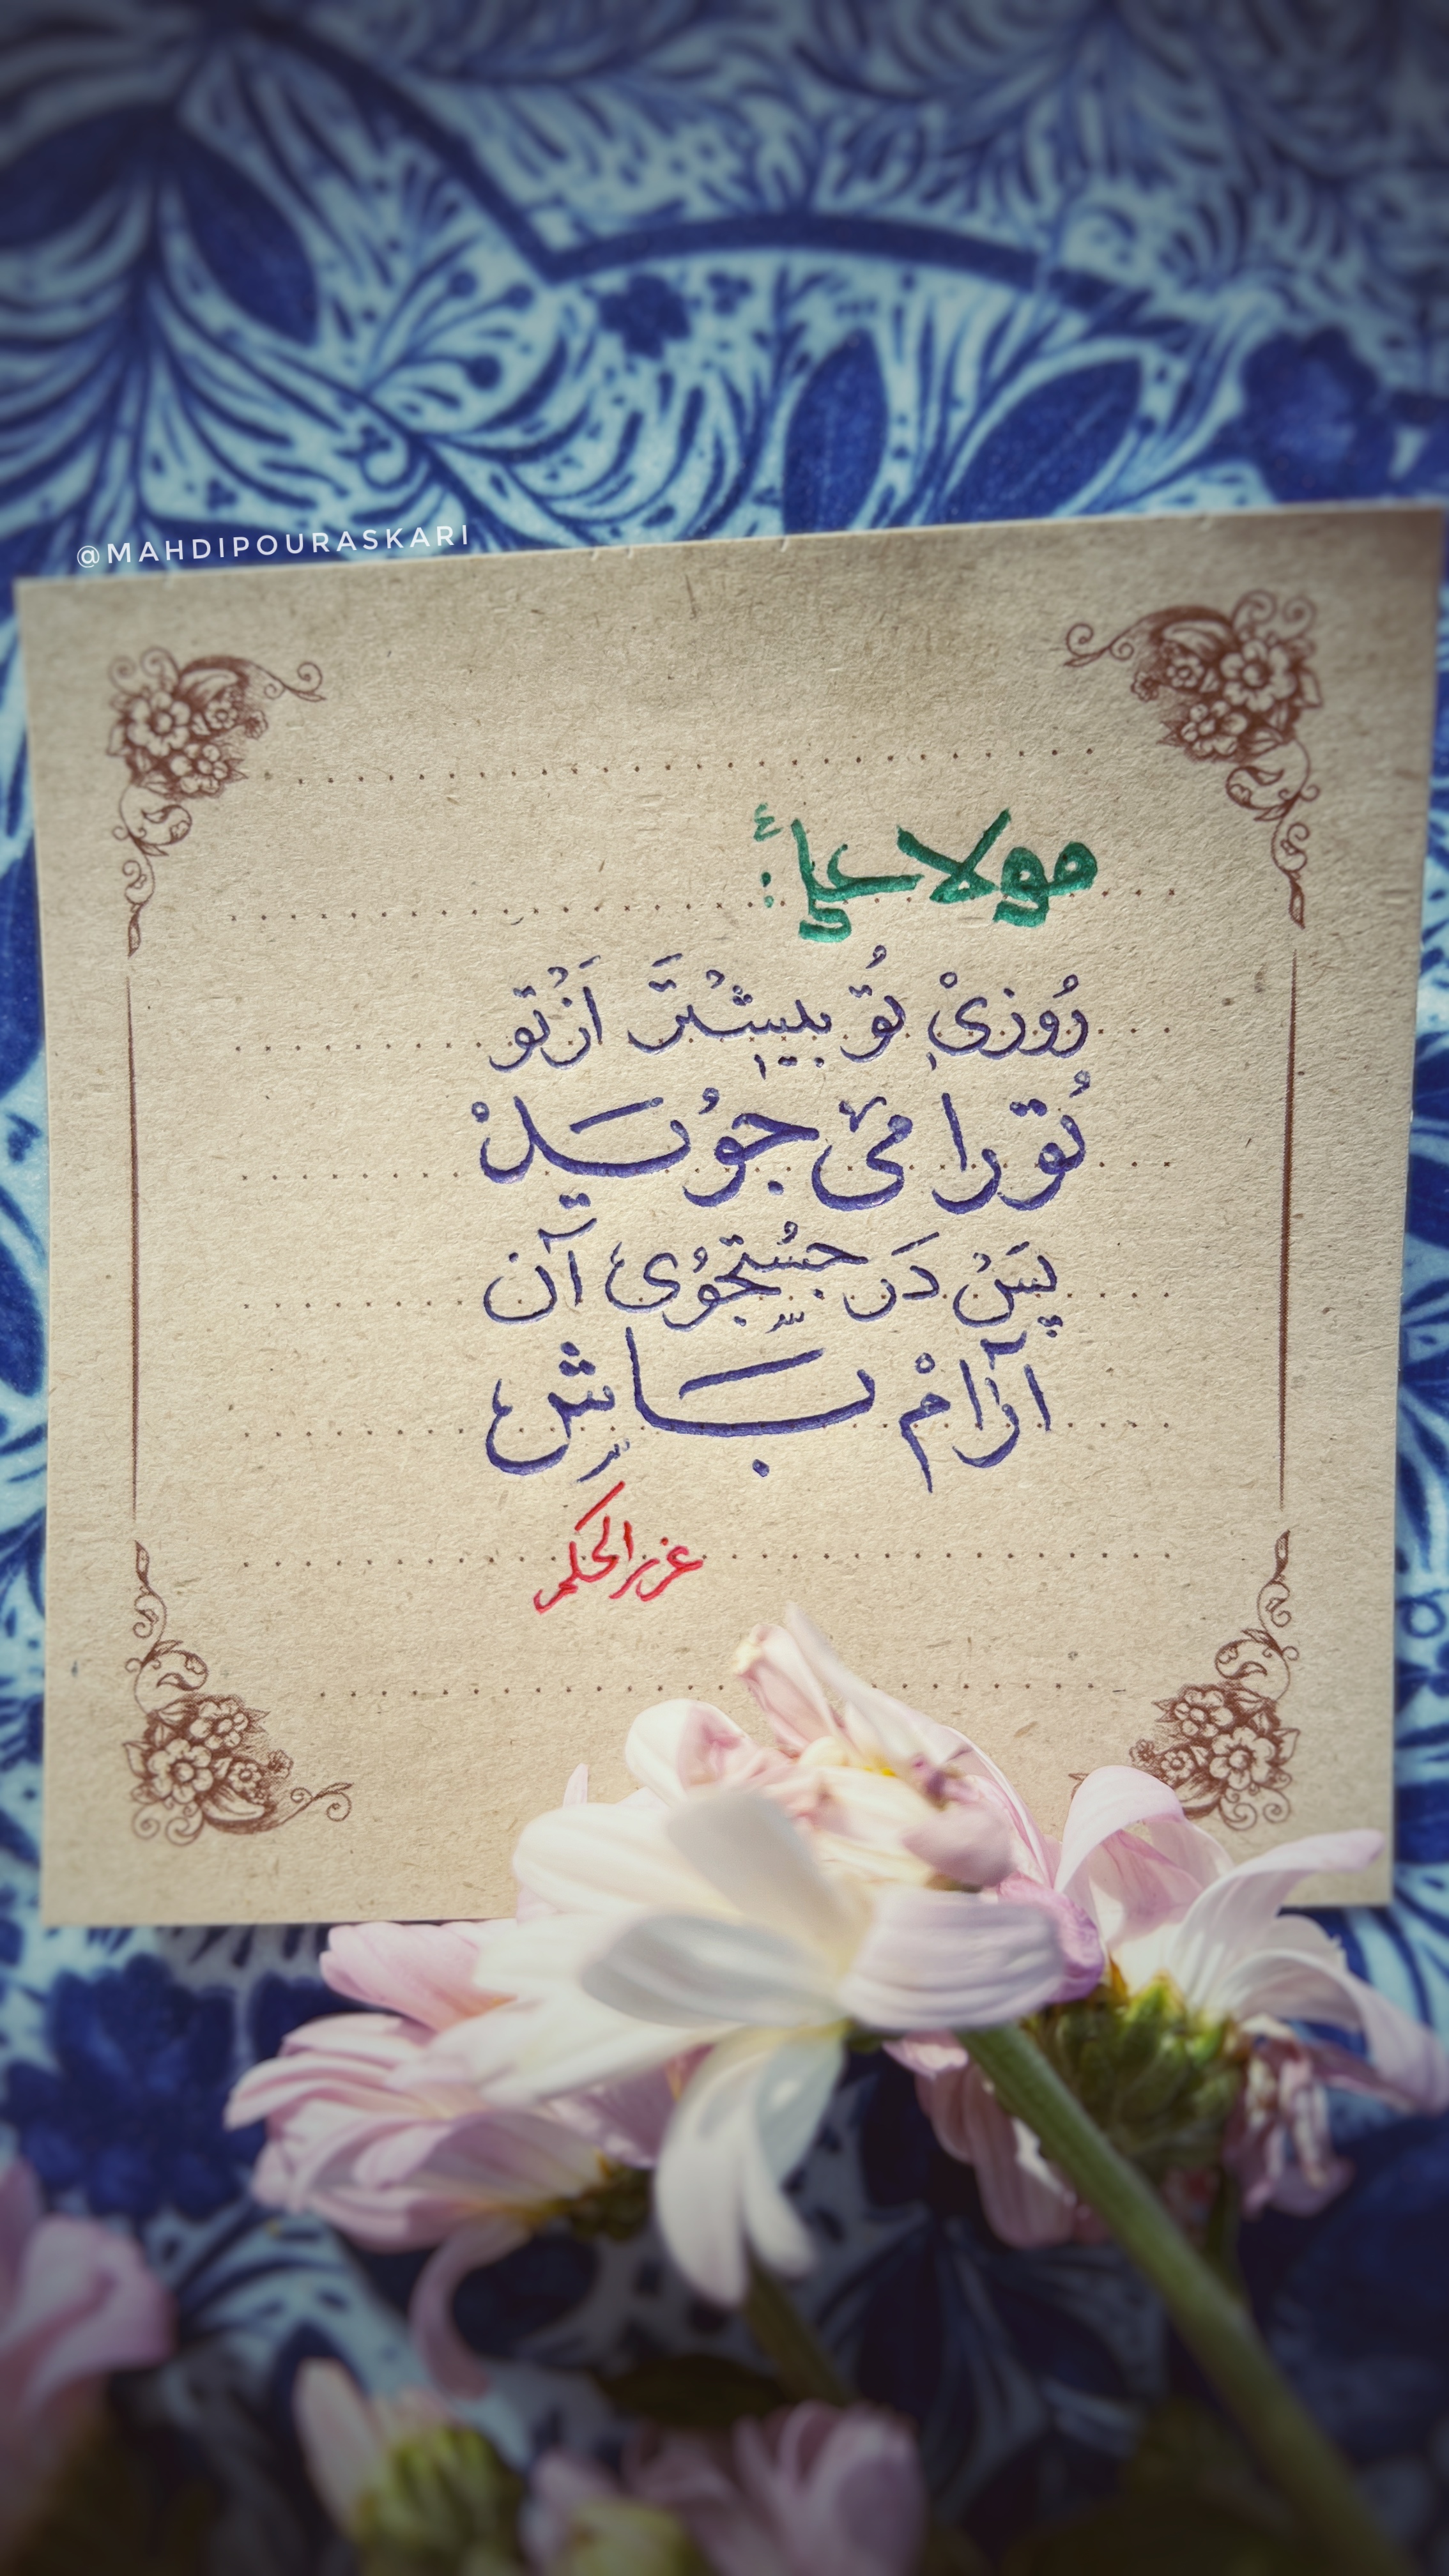 @MAHDIPOURASKARI
مولا علی ع:
رُوزیْ تُو بیشْتَر اَزْ تو
تُو را می جُویَدْ
پَسْ دَر جُستجُویِ آن
آرام بَاش
غررالحکم